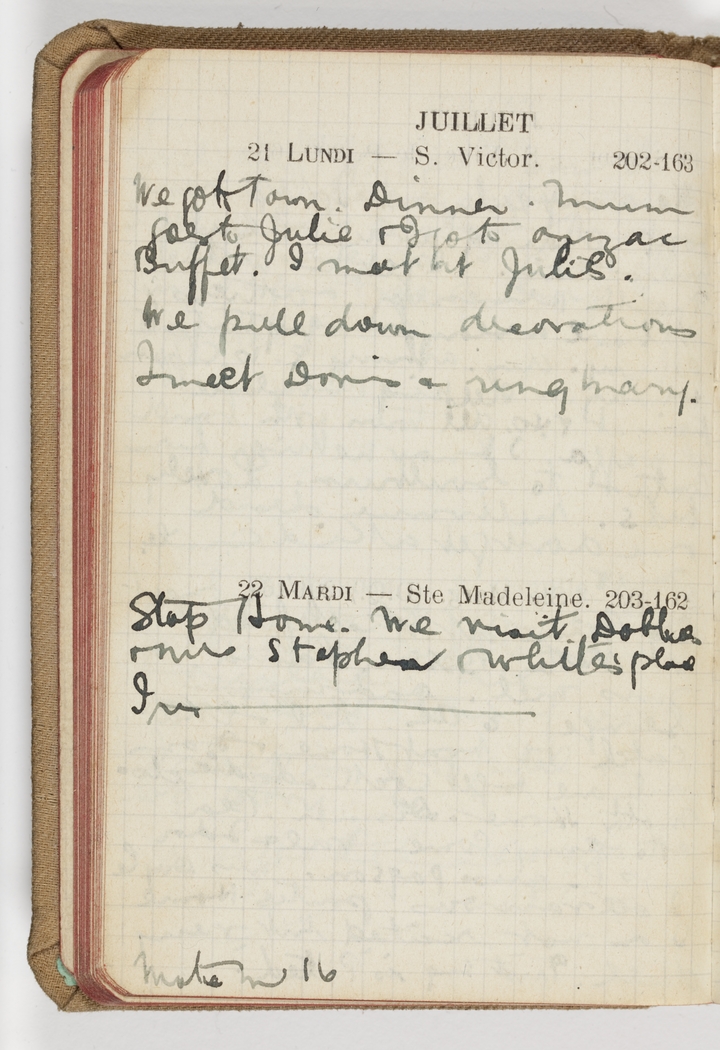 JUILLET
21 LUNDI — S. Victor. 202-163
We go to Town. Dinner. Mum
goes to Julie & I go to anzac
Buffet. I meet at Julie's.
We pull down decorations
I meet Doris & ring Mary.
22 MARDI — Ste Madeleine. 203-162
Stop Home. We visit
Stephen & place
I
16